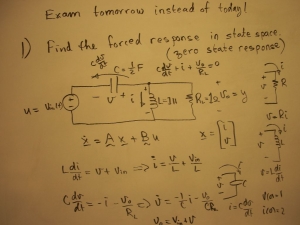 Exam tomorrow instead of today!
1) Find the forced response in state space.
(zero state response)
C dv/dt C = 1/2 F C dv/dt + i + Vo/RL = 0
u = Vin - v + i L = 1H RL = 1Ω Vo = y
ẋ = A x + B u x = [i v]
L di/dt = v + Vin ⇒ i̇ = v/L + Vin/L
C dv/dt = -i - Vo/RL ⇒ v̇ = -1/C i - Vo/CRL
Vo = Vin + v
i + v - R
v = Ri
v = L di/dt
i = C dv/dt